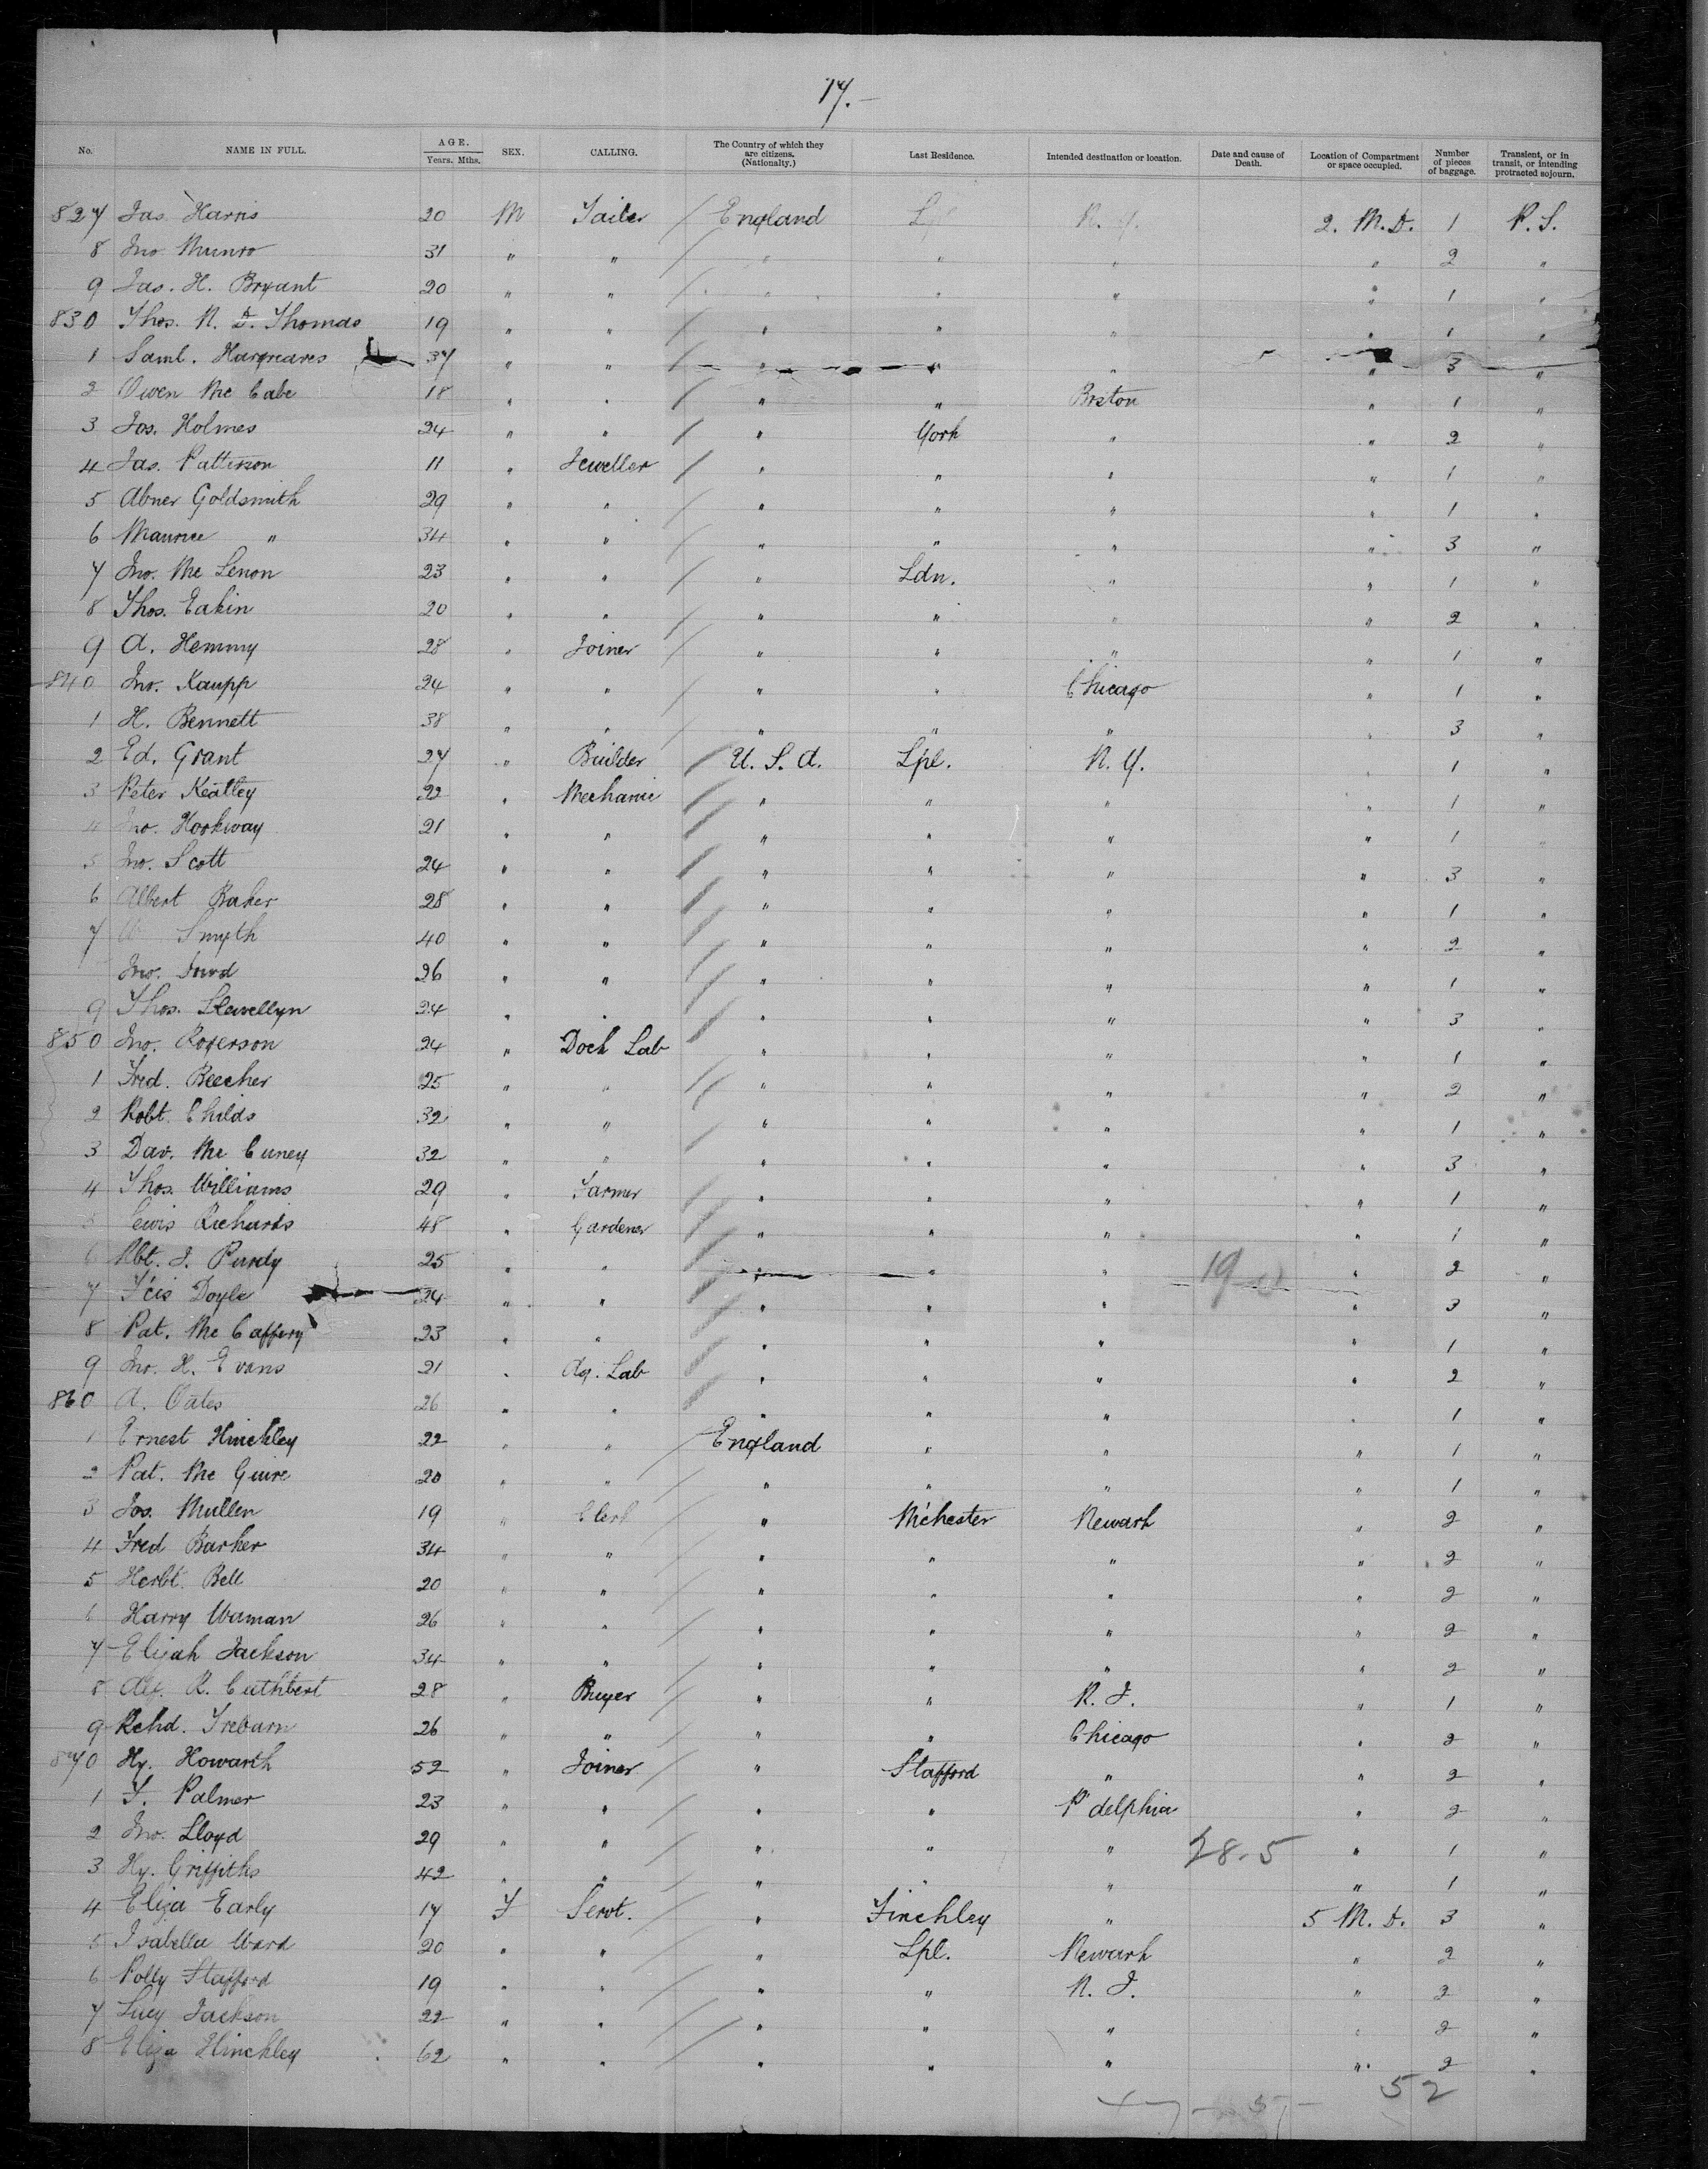 17.-
No. NAME IN FULL. AGE. Years. Mths. SEX. CALLING. The Country of which they are citizens. (Nationalty.) Last Residence. Intended destination or location. Date and cause of Death. Location of Compartment or space occupied. Number of pieces of baggage. Transient, or in transit, or intending protracted sojourn.
827 Jas. Harris 20 M Tailor / England N. Y. 2. M.D. 1 P. S.
8 Jno. Munro 31 " " / " " " " 2 "
9 Jas. H. Bryant 20 " " / " " " " 1 "
830 Thos. N. D. Thomas 19 " " / " " " " 1 "
1 Saml. Hargreaves 37 " " / " " " " 3 "
2 Owen Mc Cabe 18 " " / " " Boston " 1 "
3 Jos. Holmes 24 " " / " York " " 2 "
4 Jas. Patterson 11 " Jeweller / " " " " 1 "
5 Abner Goldsmith 29 " " / " " " " 1 "
6 Maurice " 34 " " / " " " " 3 "
7 Jno. Mc Lenon 23 " " / " Ldn. " " 1 "
8 Thos. Eakin 20 " " / " " " " 2 "
9 A. Hemmy 28 " Joiner / " " " " 1 "
840 Jno. Kaupp 24 " " / " " Chicago " 1 "
1 H. Bennett 38 " " / " " " " 3 "
2 Ed. Grant 27 " Builder / U. S. A. Lpl. N. Y. " 1 "
3 Peter Keatley 22 " Mechanic / " " " " 1 "
4 Jno. Hookway 21 " " / " " " " 1 "
5 Jno. Scott 24 " " / " " " " 3 "
6 Albert Baker 28 " " / " " " " 1 "
7 Smyth 40 " " / " " " " 2 "
Jno. 26 " " / " " " " 1 "
9 Thos. Llewellyn 24 " " / " " " " 3 "
850 Jno. Rogerson 24 " Dock Lab / " " " " 1 "
1 Fred. Beecher 25 " " / " " " " 2 "
2 Robt. Childs 32 " " / " " " " 1 "
3 Dav. Mc Cuney 32 " " / " " " " 3 "
4 Thos. Williams 29 " Farmer / " " " " 1 "
5 Lewis Richards 48 " Gardener / " " " " 1 "
6 Rbt. J. Purdy 25 " " / " " " 19 " 2 "
7 F'cis Doyle 24 " " / " " " " 3 "
8 Pat. Mc Caffery 23 " " / " " " " 1 "
9 Jno. H. Evans 21 " Ag. Lab / " " " " 2 "
860 A. Oates 26 " " / " " " " 1 "
1 Ernest Hinchley 22 " " / England " " " 1 "
2 Pat. Mc Guire 20 " " / " " " " 1 "
3 Jos. Mullen 19 " Clerk / " M'chester Newark " 2 "
4 Fred Barker 34 " " / " " " " 2 "
5 Herbt. Bell 20 " " / " " " " 2 "
6 Harry Waman 26 " " / " " " " 2 "
7 Elijah Jackson 34 " " / " " " " 2 "
8 Alf. R. Cuthbert 28 " Buyer / " " N. J. " 1 "
9 Rchd. Trebarn 26 " " / " " Chicago " 2 "
870 Hy. Howarth 52 " Joiner / " Stafford " " 2 "
1 F. Palmer 23 " " / " " P'delphia " 2 "
2 Jno. Lloyd 29 " " / " " " 28.5 " 1 "
3 Hy. Griffiths 42 " " / " " " " 1 "
4 Eliza Early 17 F Servt. / " Finchley " 5 M. D. 3 "
5 Isabella Ward 20 " " / " Lpl. Newark " 2 "
6 Polly Stafford 19 " " / " " N. J. " 2 "
7 Lucy Jackson 22 " " / " " " " 2 "
8 Eliza Hinchley 62 " " / " " " " 2 "
52